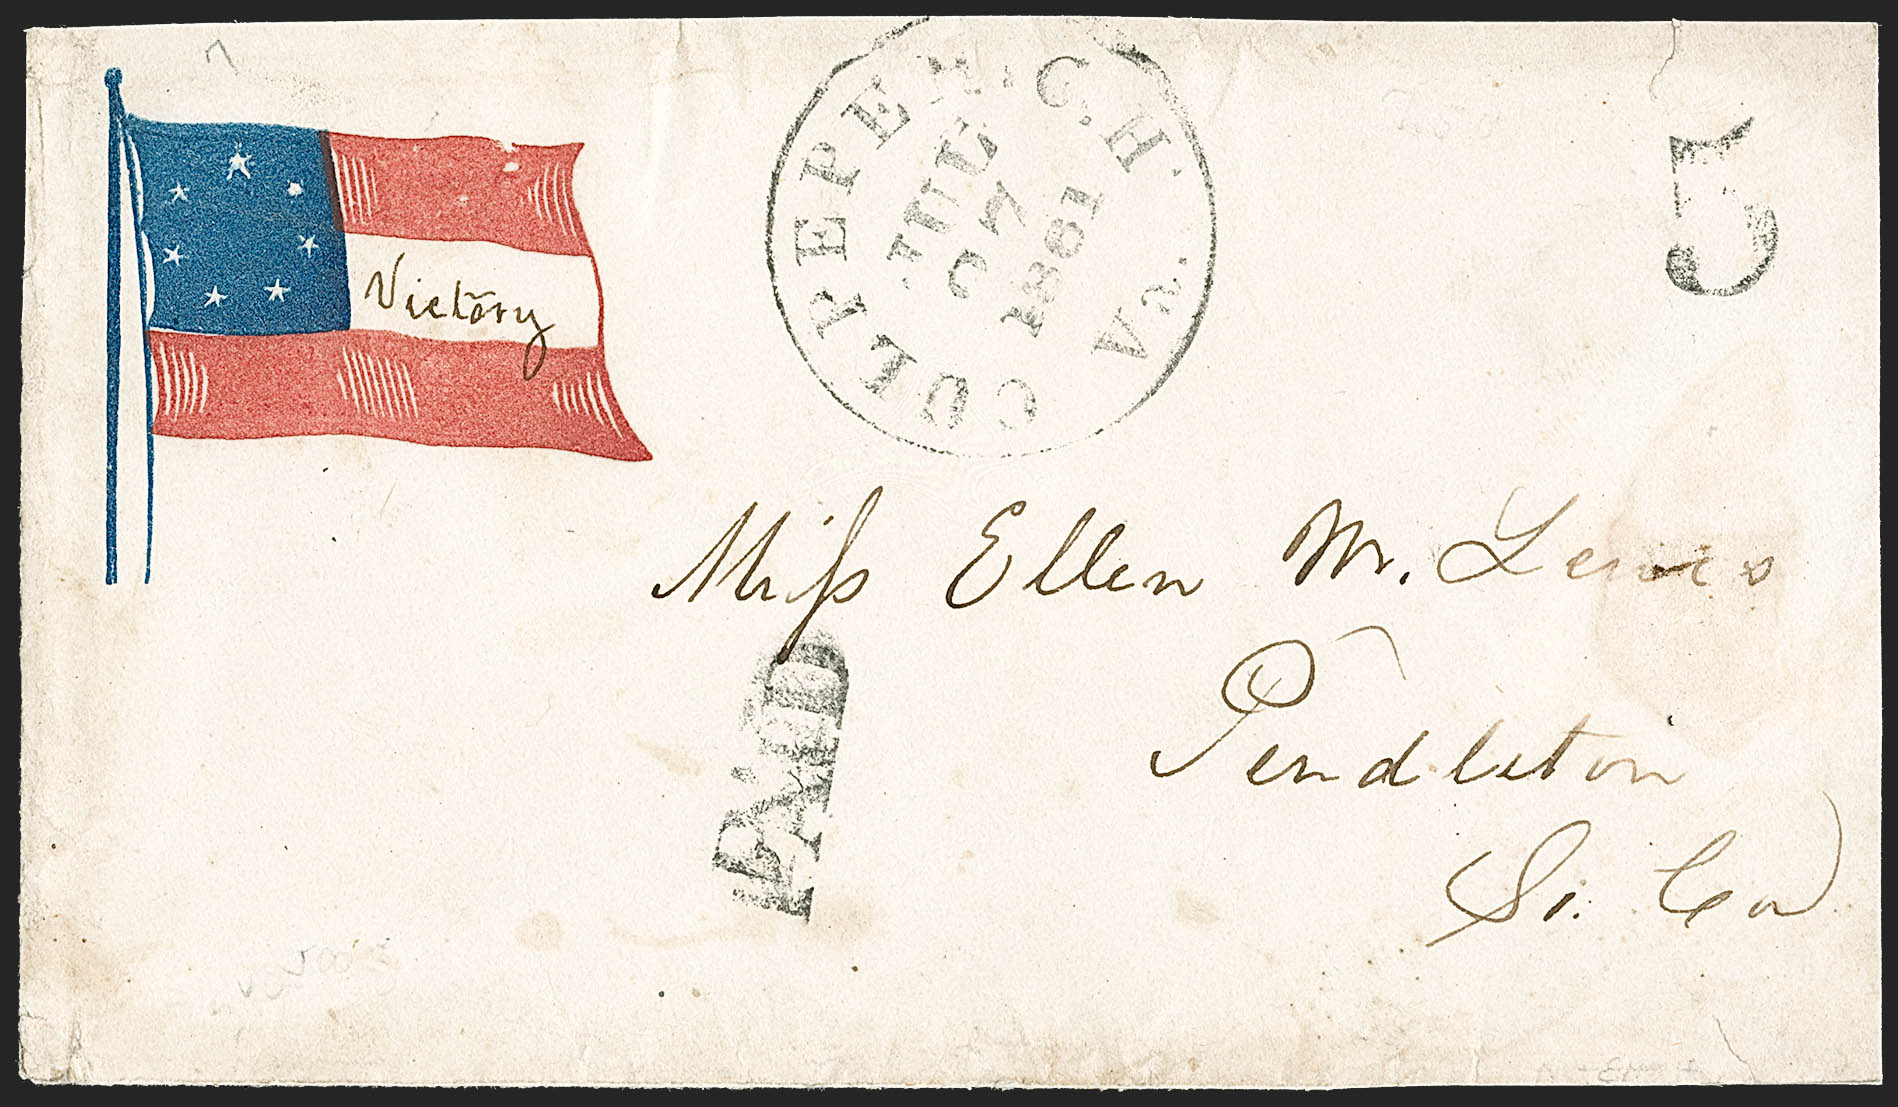 Victory
CULPEPER C.H. VA.
JUL
27
1861
5
Miss Ellen M. Lewis
PAID
Pendleton
So. Ca